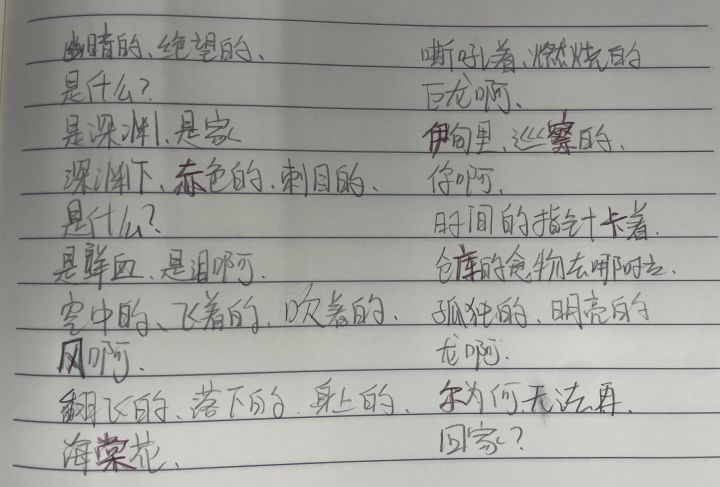 幽暗的、绝望的、
是什么?
是深渊、是家
深渊下、赤色的、刺目的、
是什么?
是鲜血、是泪啊.
空中的、飞着的、吹着的、
风啊.
翻飞的、落下的、身上的、
海棠花、
嘶吼着、燃烧的
巨龙啊、
伊甸里、巡察的、
你啊.
时间的指针卡着.
仓库的食物去哪啦.
孤独的、明亮的
龙啊.
尔为何、无法再、
回家?